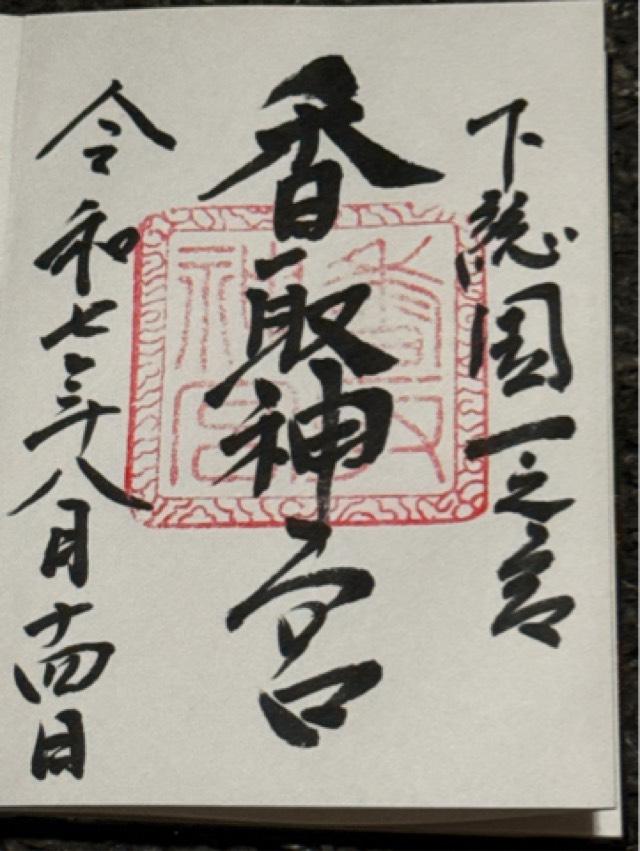 下総国一之宮
香取神宮
香取神宮
令和七年八月十四日